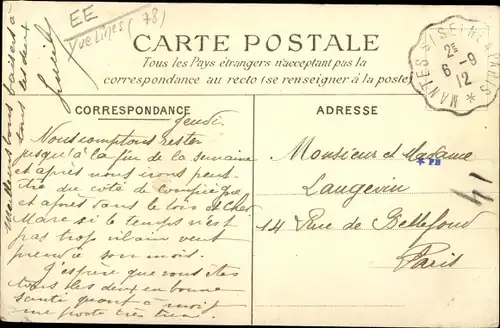 EE
Vue Lines (78)
CARTE POSTALE
Tous les Pays étrangers n'acceptant pas la
correspondance au recto (se renseigner à la poste)
MANTES S/SEINE À PARIS
2E
6 - 9
12
CORRESPONDANCE
ADRESSE
Jeudi.
Nous comptons rester
jusqu'à la fin de la semaine
et après nous irons peut-
être du côté de Compiègne
et après dans le Loir et Cher
Marc si le temps n'est
pas trop vilain veut
prendre son mois.
J'espère que vous êtes
tous les deux en bonne
santé quant à moi je
me porte très bien
Meilleurs bons baisers à
tous les deux
Lucile
Monsieur et Madame
* PH
Langevin
14 Rue de Bellefond
Paris
41